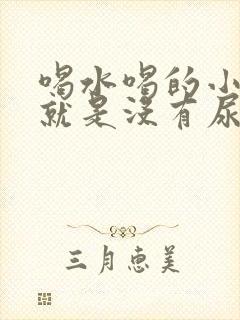 喝水喝的小
就是没有尿
三月惠美